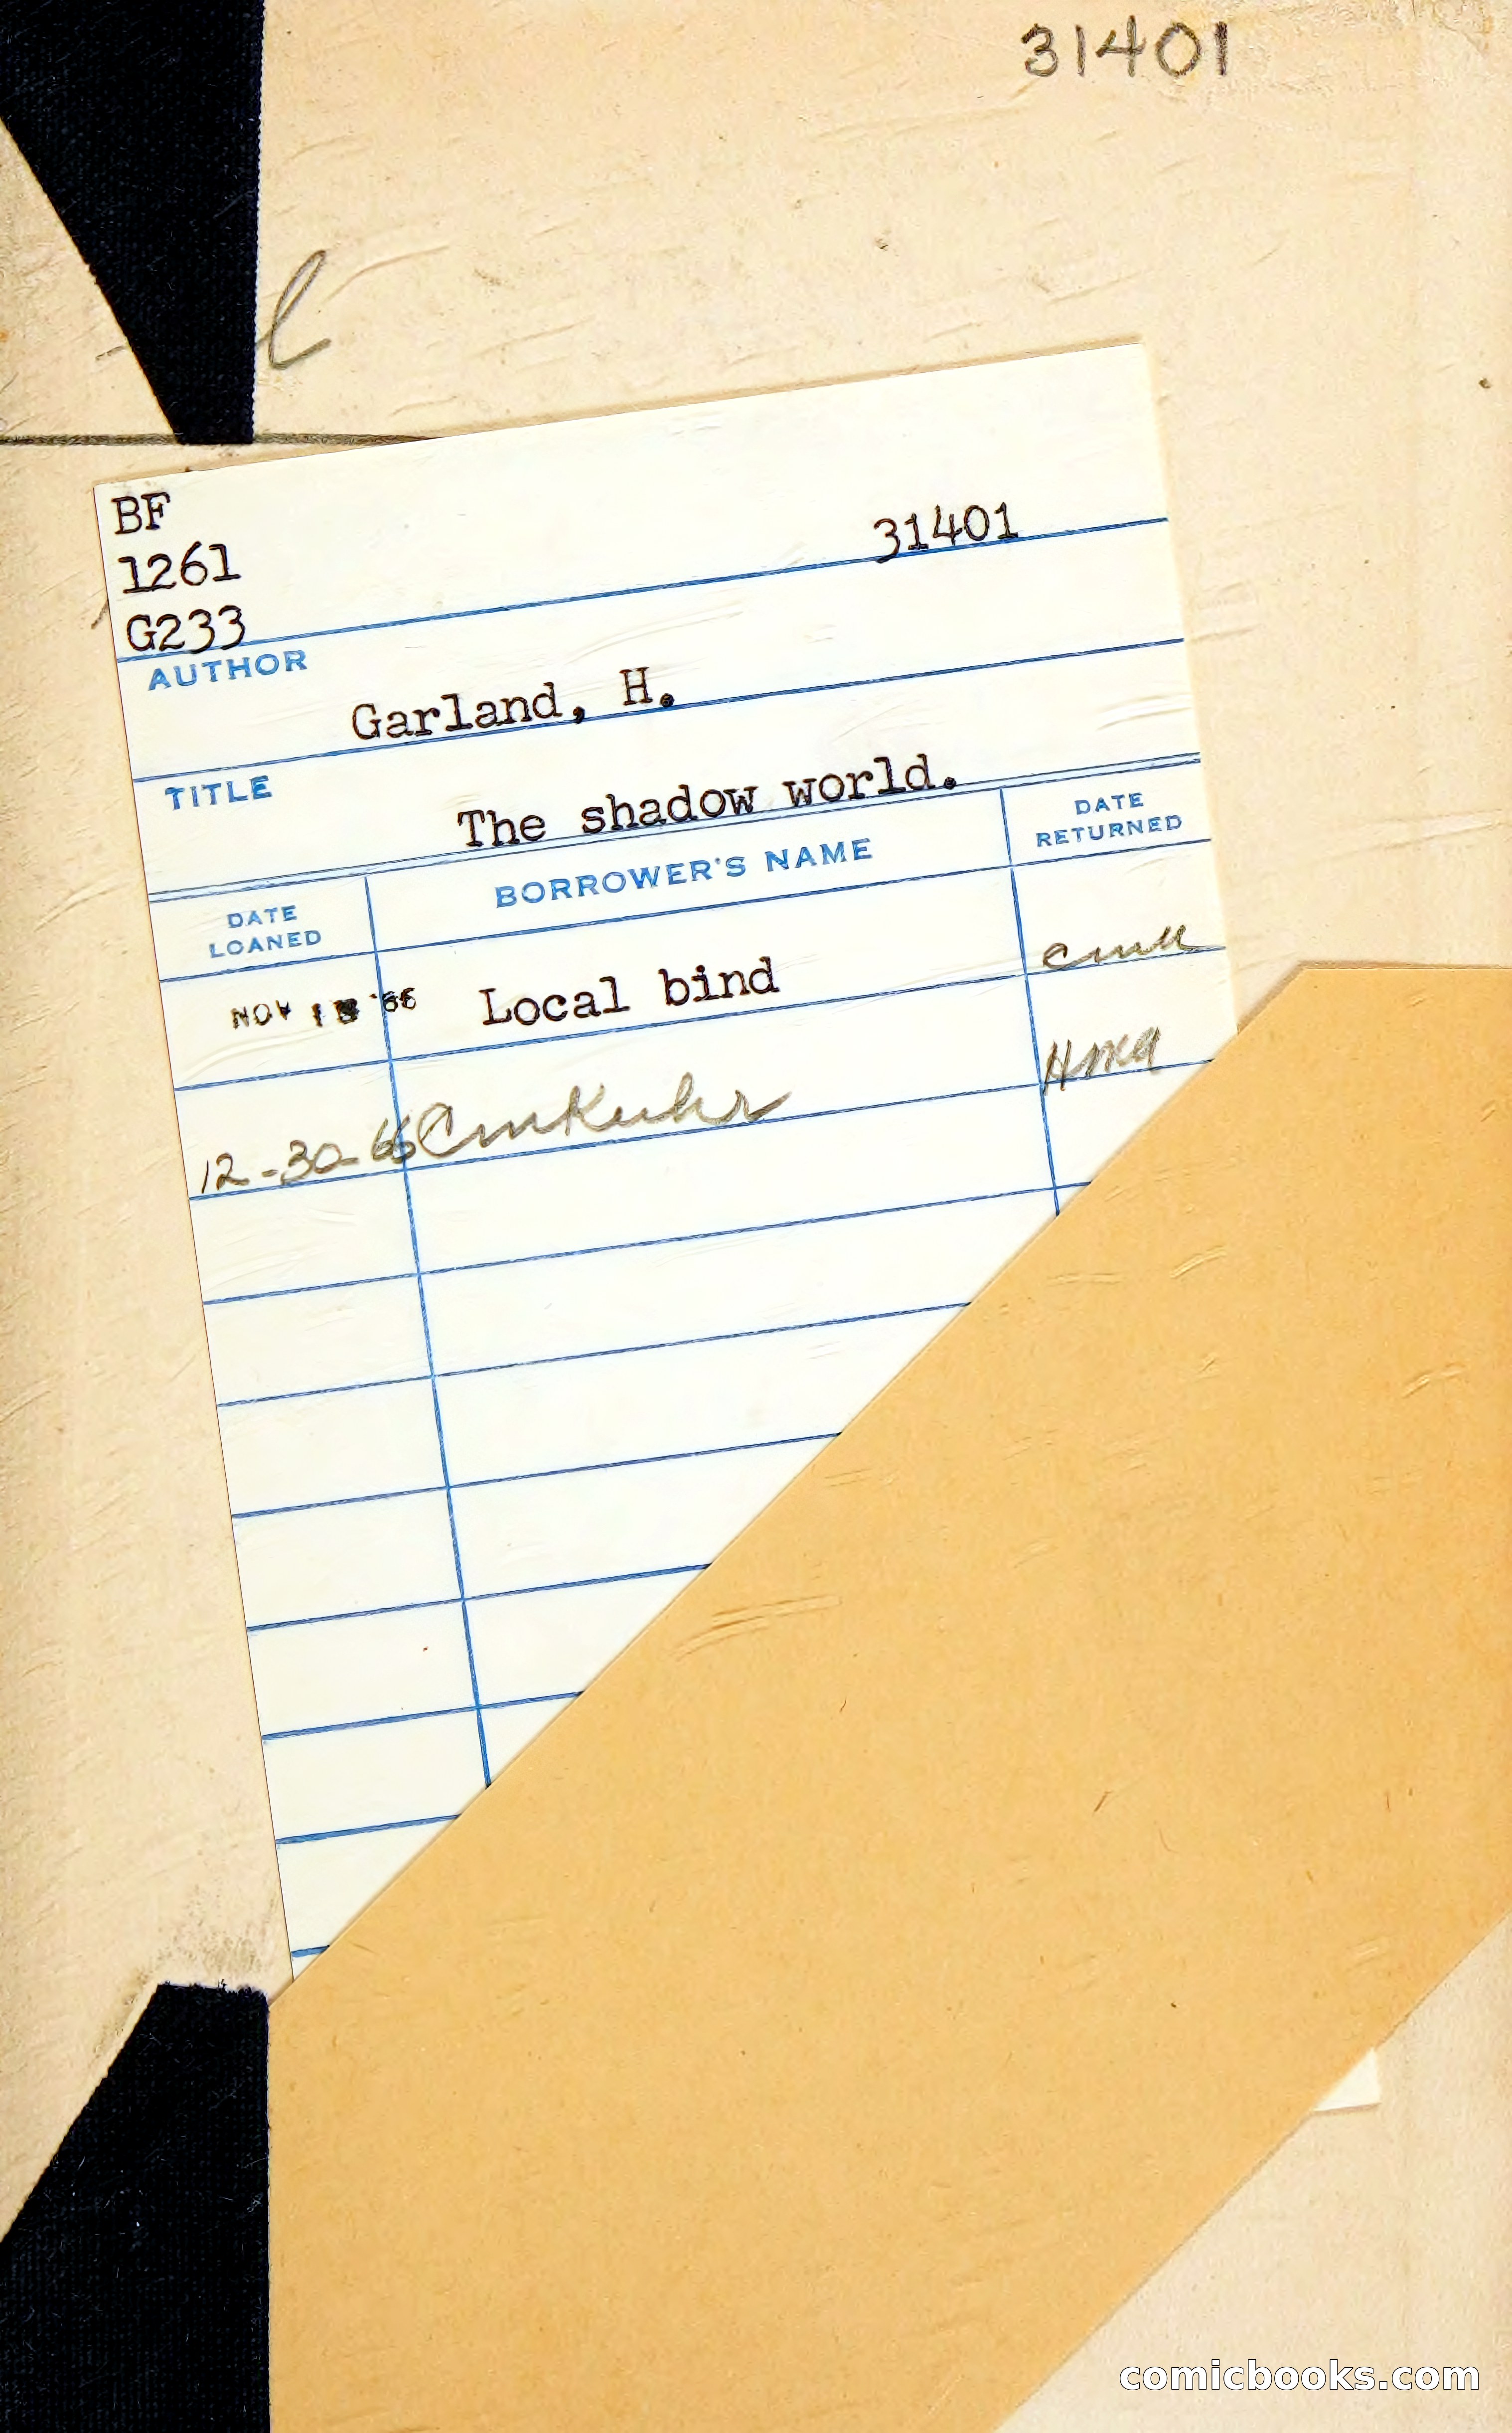 31401
l
BF
1261
G233
31401
AUTHOR
Garland, H.
TITLE
The shadow world.
DATE LOANED
BORROWER'S NAME
DATE RETURNED
NOV '66 Local bind
12-30-66
comicbooks.com